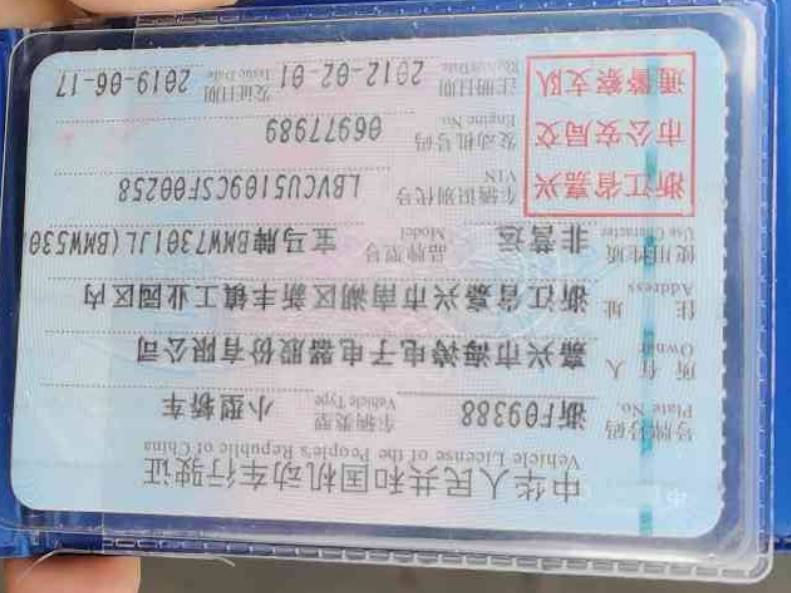 中华人民共和国机动车行驶证
Vehicle License of the People's Republic of China
号牌号码 浙F09388 车辆类型 小型轿车
Plate No. Vehicle Type
所有人 嘉兴市海湾电子电器股份有限公司
Owner
住址 浙江省嘉兴市南湖区新丰镇工业园区内
Address
使用性质 非营运 品牌型号 宝马牌BMW7301JL(BMW530
Use Character Model
浙江省嘉兴
市公安局交
通警察支队
车辆识别代号 LBVCU5109CSF00258
VIN
发动机号码 06977989
Engine No.
注册日期 2012-02-01 发证日期 2019-06-17
Register Date Issue Date